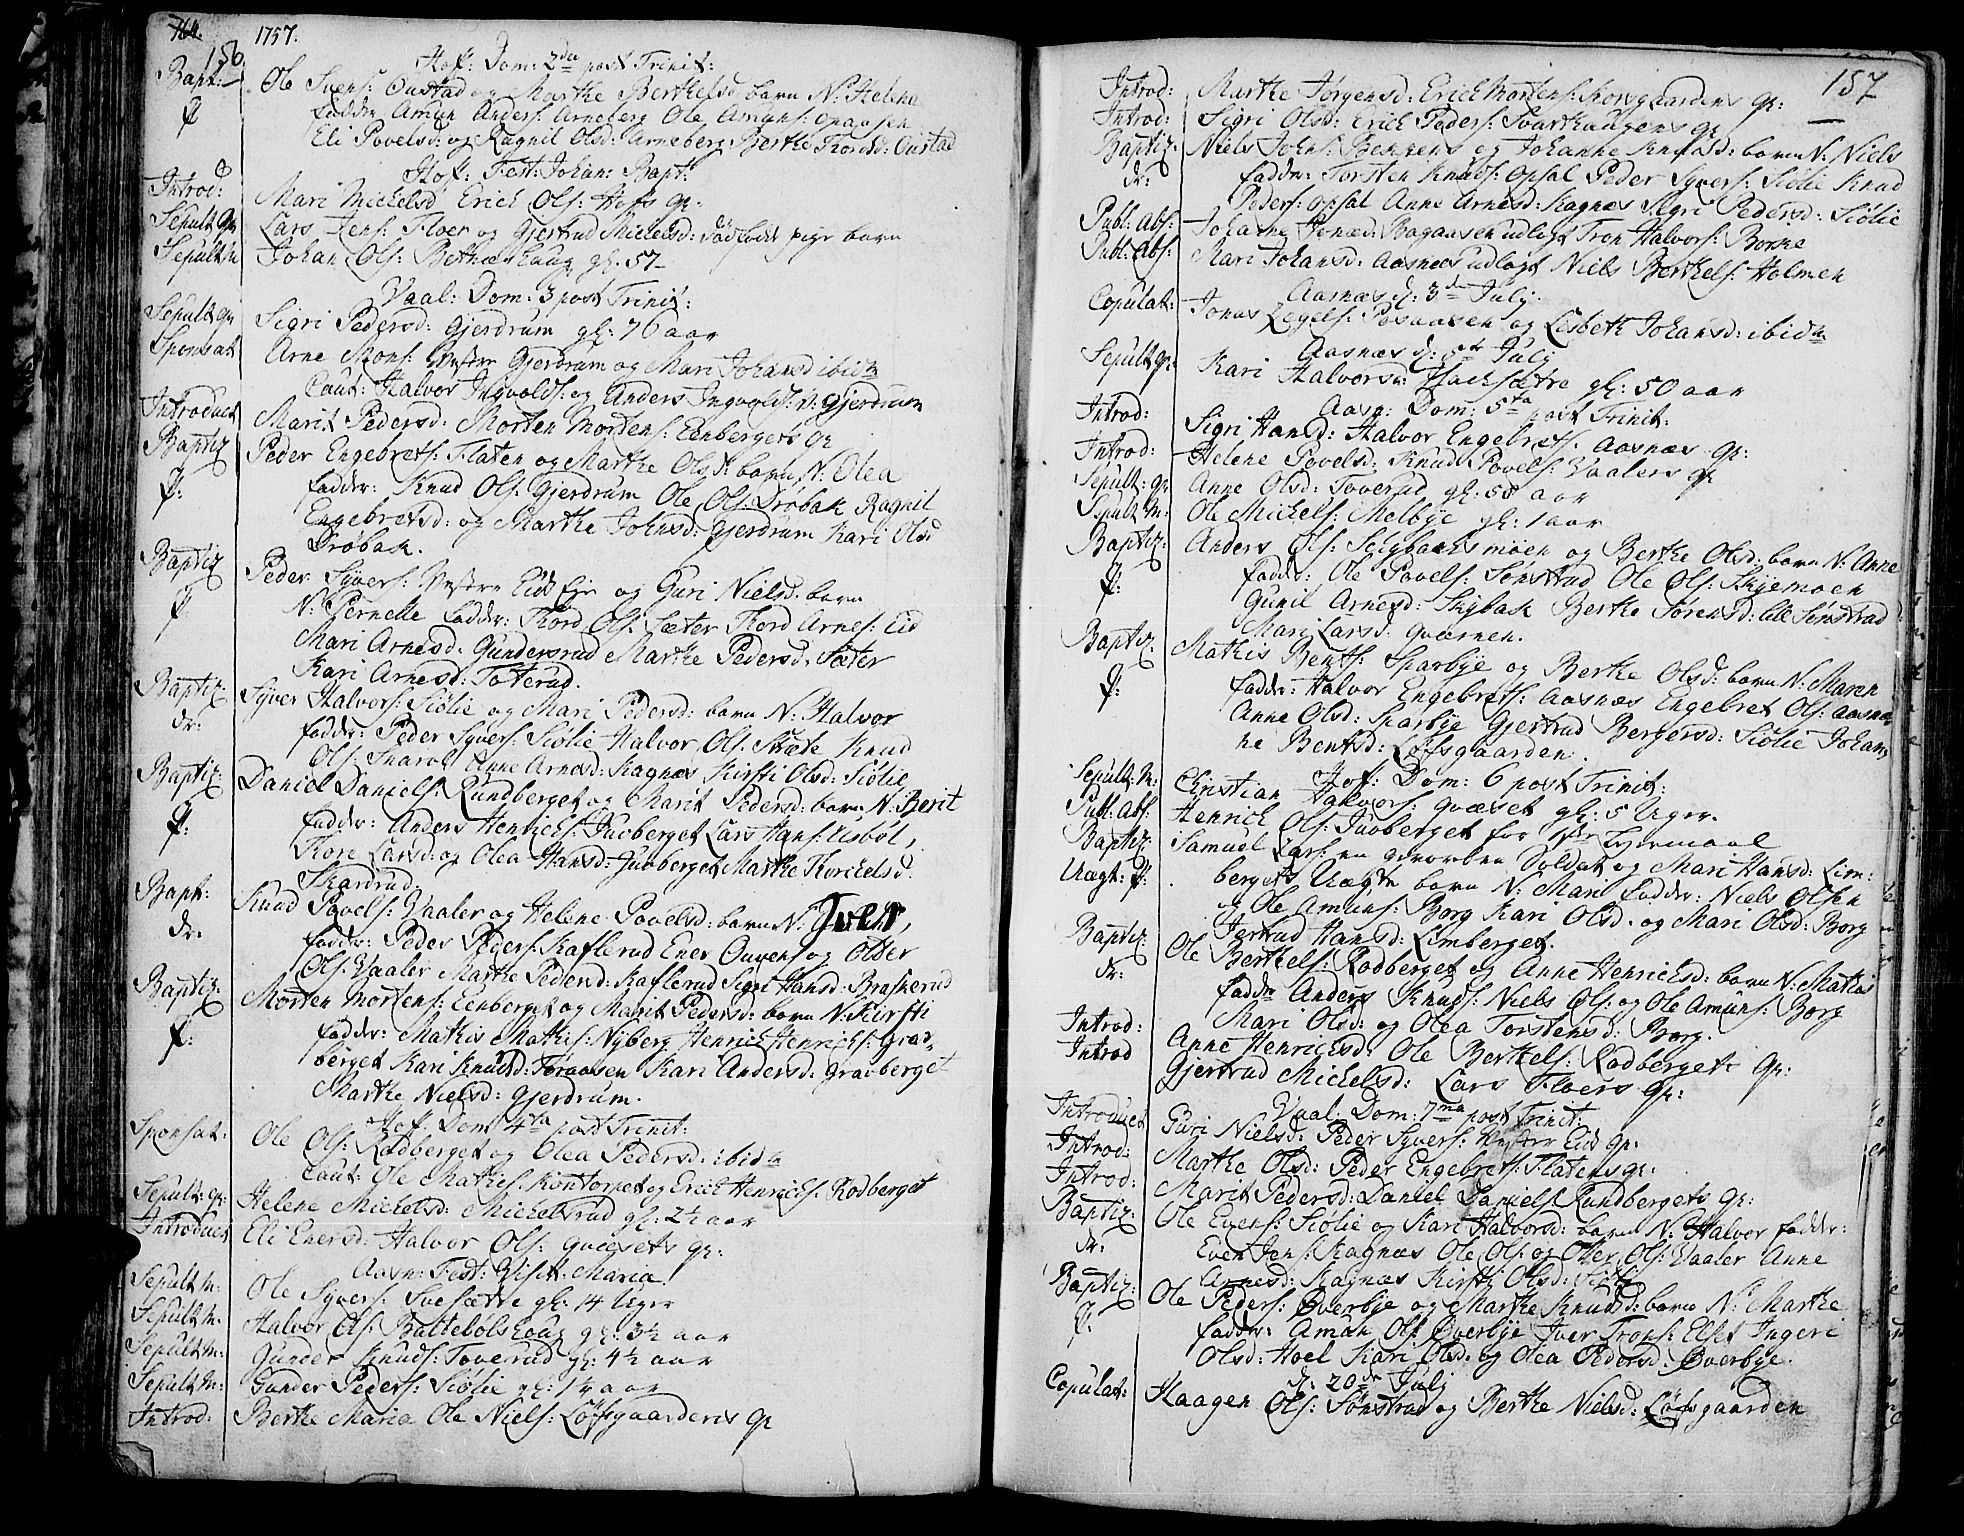 764. 1757.
156.
Hof: Dom: 2da post Trinit:
Bapt: Ole Svens: Oustad og Marthe Berthelsd barn N: Helene
f faddr Amun Anders: Arneberg Ole Amuns: opaasen
Eli Povelsd: og Ragnil Olsd: Arneberg Berthe Thordsd: Oustad
Hof: Fest: Johan: Bapt:
Introd: Mari Mickelsd Erich Ols: Hofs qv:
Sepult qv Lars Jens: Floer og Gjertrud Mickelsd: dödfödt pige barn
Sepult m Johan Ols: haug gl: 57
Vaal: Dom: 3 post Trinit:
Sepult qv Sigri Pedersd: Gjerdrum gl: 76 aar
Sponsat Arne Mons: Vestre Gjerdrum og Mari Johansd ibidm
Caut: Halvor Ingvolds: og Anders Ingvolds: V: Gjerdrum
Introduct Marit Pedersd: Morten Mortens: Eenbergets qv
Baptiz Peder Engebrets: Flaten og Marthe Olsd: barn N: Olea
f: faddr: Knud Ols: Gjerdrum Ole Ols: Dröbak Ragnil
Engebretsd: og Marthe Johnsd: Gjerdrum Kari Olsd
Dröbak.
Baptiz Peder Syvers: Vestre Eid Eje og Guri Nielsd: barn
f N: Pernelle faddr: Thord Ols: Sæter Thord Arnes: Eid
Mari Arnesd: Gundersrud Marthe Pedersd: Sæter
Kari Arnesd: Toterud.
Baptiz: Syver Halvors: Siölie og Mari Pedersd: barn N: Halvor
dr: faddr: Peder Syvers: Siölie Halvor Ols: Knud
Ols: Anne Arnesd: Kagnæs Kirsti Olsd: Siölie
Baptiz: Daniel Daniels: Rundberget og Marit Pedersd: barn N: Berit
f: faddr: Anders Henrichs: Juvberget Lars Hans: Eisböl,
Thore Larsd: og Olea Hansd: Juvberget Marthe Thorchelsd.
Skardrud
Bapt: Knud Povels: Vaaler og Helene Povelsd: barn N: Iver,
dr: faddr: Peder Peders: Kaflerud Ener Ouvens: og Otter
Ols: Vaaler Marthe Pedersd: Kaflerud Sigri Hansd: Braskerud
Baptiz: Morten Mortens: Eenberget og Marit Pedersd: barn N: Kirsti
f: faddr: Mathis Mathis: Nyberg Henrich Henrichs: Grav-
berget Kari Knudsd: Toraasen Kari Andersd: Gravberget
Marthe Nielsd: Gjerdrum.
Hof: Dom: 4ta post Trinit:
Sponsat: Ole Ols: Rodberget og Olea Pedersd: ibidm
Caut: Ole Mathes: Kontorpet og Erich Henrichs: Rodberget
Sepult: qv: Helene Mickelsd: Mickelsrud gl: 2½ aar
Introduct Eli Enersd: Halvor Ols: Qvæsets qv:
Aasn: Fest: Visit: Maria:
Sepult m: Ole Syvers: Svesætre gl: 14 Uger
Sepult m. Halvor Ols: Baltebölshaug gl: 3½ aar
Sepult m: Gunder Knuds: Toverud gl: 4½ aar
Sepult m: Gunder Peders: Siölie gl: 1¼ aar
Introd: Berthe Maria Ole Niels: Löfsgaardens qv
157
Introd: Marthe Jörgensd: Erich Mortens: Korsgaardens qv:
Introd: Sigri Olsd: Erich Peders: Svarthaugens qv
Baptiz: Niels Johns: og Johanne Knudsd: barn N: Niels
dr: faddr: Torsten Knuds: Opsal Peder Syvers: Siölie Knud
Peders: Opsal Anne Arnesd: Kagnæs Sigri Pedersd: Siölie
Publ: Abs: Johanne Bagaasen udlagt Tron Halvors: Borne
Publ: Abs: Mari Johansd: Aasnæs udlagt Niels Berthels: Holmen
Aasnæs d: 3de July
Copulat: Jonas og Lisbeth Johansd: ibidm
Aasnæs d: July
Sepult qv: Kari Halvorsd: gl: 50 aar
Aasn: Dom: 5ta post Trinit:
Introd: Sigri Hansd: Halvor Engebrets: Aasnæs qv:
Introd: Helene Povelsd: Knud Povels: Vaalers qv
Sepult: qv Anne Olsd: Toverud gl: 58 aar
Sepult m: Ole Mickels: Melbye gl: 1 aar
Baptiz: Anders Ols: moen og Berthe Olsd: barn N: Anne
f: faddr: Ole Povels: Sönstrud Ole Ols: Skyemoen
Gunil Arnesd: Skybak Berthe Sörensd: lill Sönstrud
Mari Larsd: Qværnen.
Baptiz: Mathis Bents: Sparbye og Berthe Olsd: barn N: Maren
f: faddr: Halvor Engebrets: Aasnæs Engebret Ols: Aasnæs
Anne Olsd: Sparbye Gjertrud Bergersd: Siölie Johan-
ne Bentsd: Löfsgaarden.
Hof: Dom: 6 post Trinit:
Sepult: m: Christian Halvors: Qvæset gl: 5 Uger.
Publ: Abs: Henrich Ols: Juvberget for 1ste Leyermaal
Baptiz: Samuel Lars: en gevorben Soldat og Mari Hansd: Lim-
Uægt: f: bergets Uægte barn N: Mari faddr: Niels Olsen
og Ole Amuns: Borg Kari Olsd. og Mari Olsd: Borg
Jertrud Hansd: Limberget.
Baptiz: Ole Berthels: Rodberget og Anne Henrichsd: barn N: Mathis
dr: faddr Anders Knuds: Niels Ols: og Ole Amuns: Borg
Mari Olsd: og Olea Torstensd: Borg.
Introd: Anne Henrichsd: Ole Berthels: Rodbergets qv:
Introd Gjertrud Mickelsd: Lars Floers qv:
Vaal: Dom: 7ma post Trinit:
Introduct Guri Nielsd: Peder Syvers: Vestre Eid qv:
Introd: Marthe Olsd: Peder Engebrets: Flatens qv:
Introd: Marit Pedersd: Daniel Daniels Rundbergets qv:
Baptiz: Ole Evens: Siölie og Kari Halvorsd: barn N: Halvor faddr:
dr: Even Jens: Kagnæs Ole Ols: og Otter Ols: Vaaler Anne
Arnesd: Kagnæs Kirsti Olsd: Siölie
Baptiz: Ole Peders: Överbye og Marthe Knudsd: barn N: Marthe
f: faddr: Amun Ols: Överbye Iver Trons: Elset Ingeri
Olsd: Hoel Kari Olsd: og Olea Pedersd: Överbye.
d: 20de July
Copulat: Haagen Ols: Sönstrud og Berthe Nielsd: Löfsgaarden